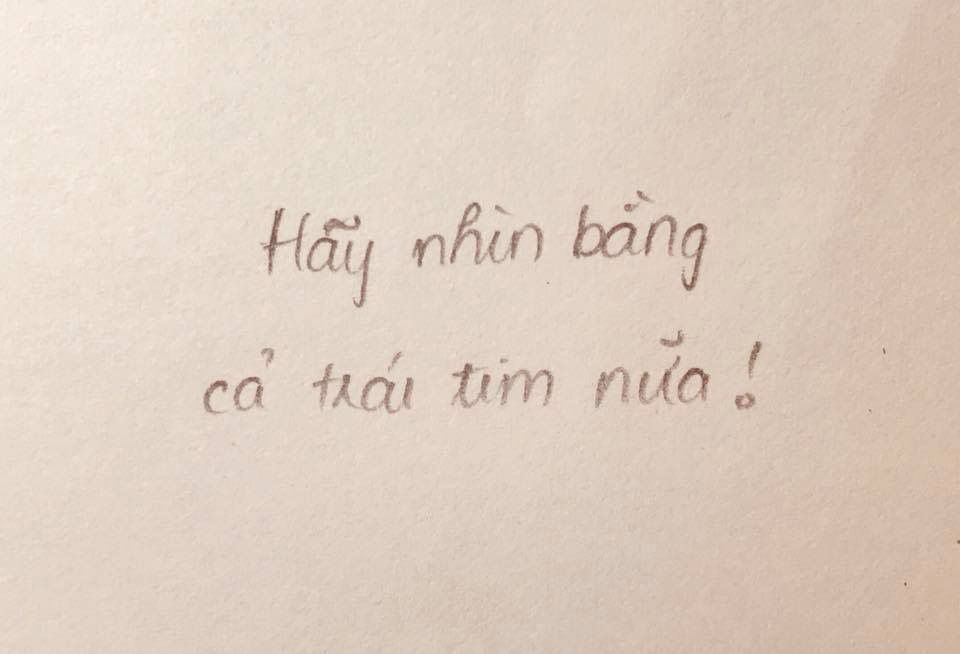 Hãy nhìn bằng
cả trái tim nữa!